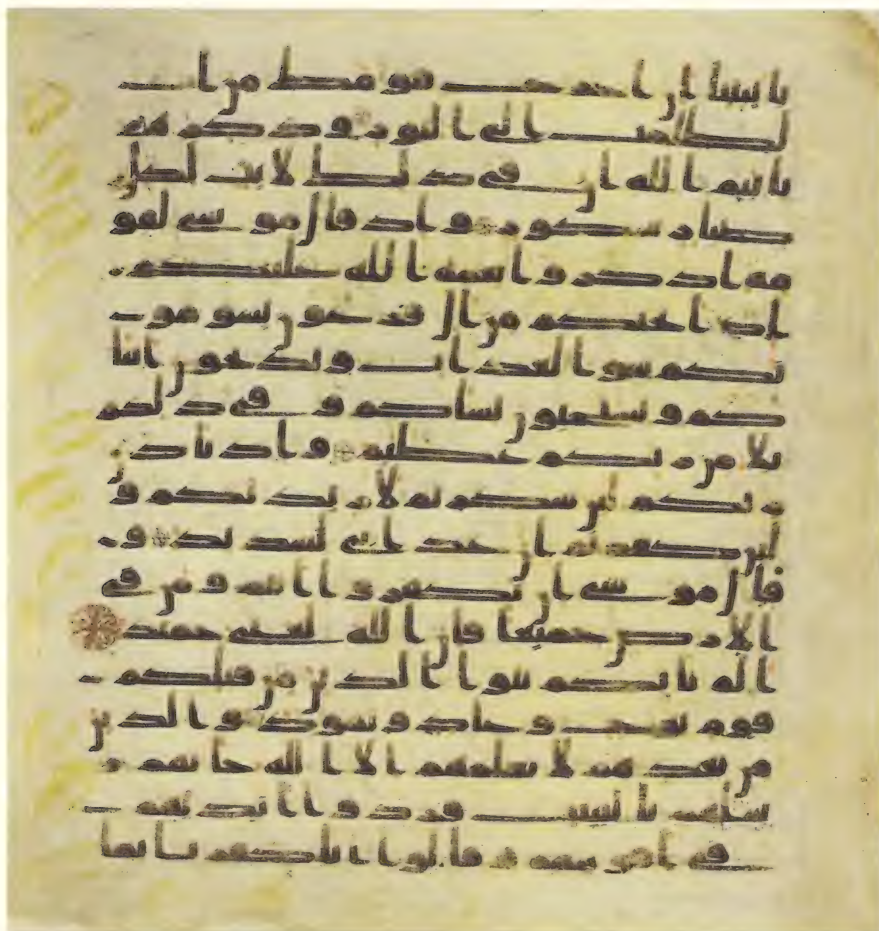 بايتنا ان اخرج قومك من ا
لظلمت الى النور وذكرهم
بايىم الله ان في ذلك لايت لكل
صبار شكور واذ قال موسى لقو
مه اذكروا نعمة الله عليكم
اذ انجيكم من ال فرعون يسومو
نكم سو العذاب ويذبحون ابنا
كم ويستحيون نساكم وفي ذلكم
بلا من ربكم عظيم واذ تاذن
ربكم لين شكرتم لازيدنكم و
لين كفرتم ان عذابي لشديد و
قال موسى ان تكفروا انتم ومن في
الارض جميعا فان الله لغني حميد
الم ياتكم نبوا الذين من قبلكم
قوم نوح وعاد وثمود والذين
من بعدهم لا يعلمهم الا الله جاتهم ر
سلهم بالبينت فردوا ايديهم
في افوههم وقالوا انا كفرنا بما